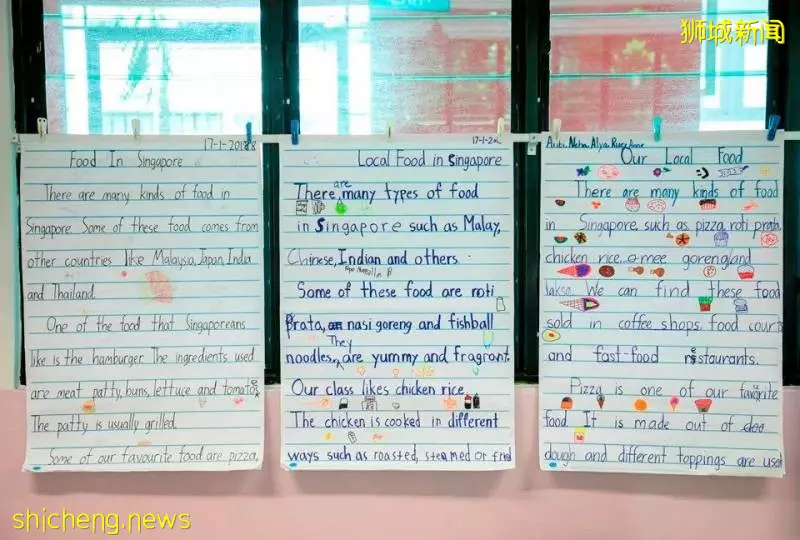 狮城新闻
17-1-2018
Food In Singapore
There are many kinds of food in
Singapore. Some of these food comes from
other countries like Malaysia, Japan, India
and Thailand.
One of the food that Singaporeans
like is the hamburger. The ingredients used
are meat patty, buns, lettuce and tomatoes.
The patty is usually grilled.
Some of our favourite food are pizza,
17-1-20
Local Food in Singapore
There are many types of food
in Singapore such as Malay,
Chinese, Indian and others.
Some of these food are roti
prata, nasi goreng and fishball
noodles. They are yummy and fragrant.
Our class likes chicken rice.
The chicken is cooked in different
ways such as roasted, steamed or fried
Our Local Food
There are many kinds of food
in Singapore such as pizza, roti prata,
chicken rice, mee goreng and
laksa. We can find these food
sold in coffee shops, food courts
and fast-food restaurants.
Pizza is one of our favourite
food. It is made out of
dough and different toppings are used
shicheng.news